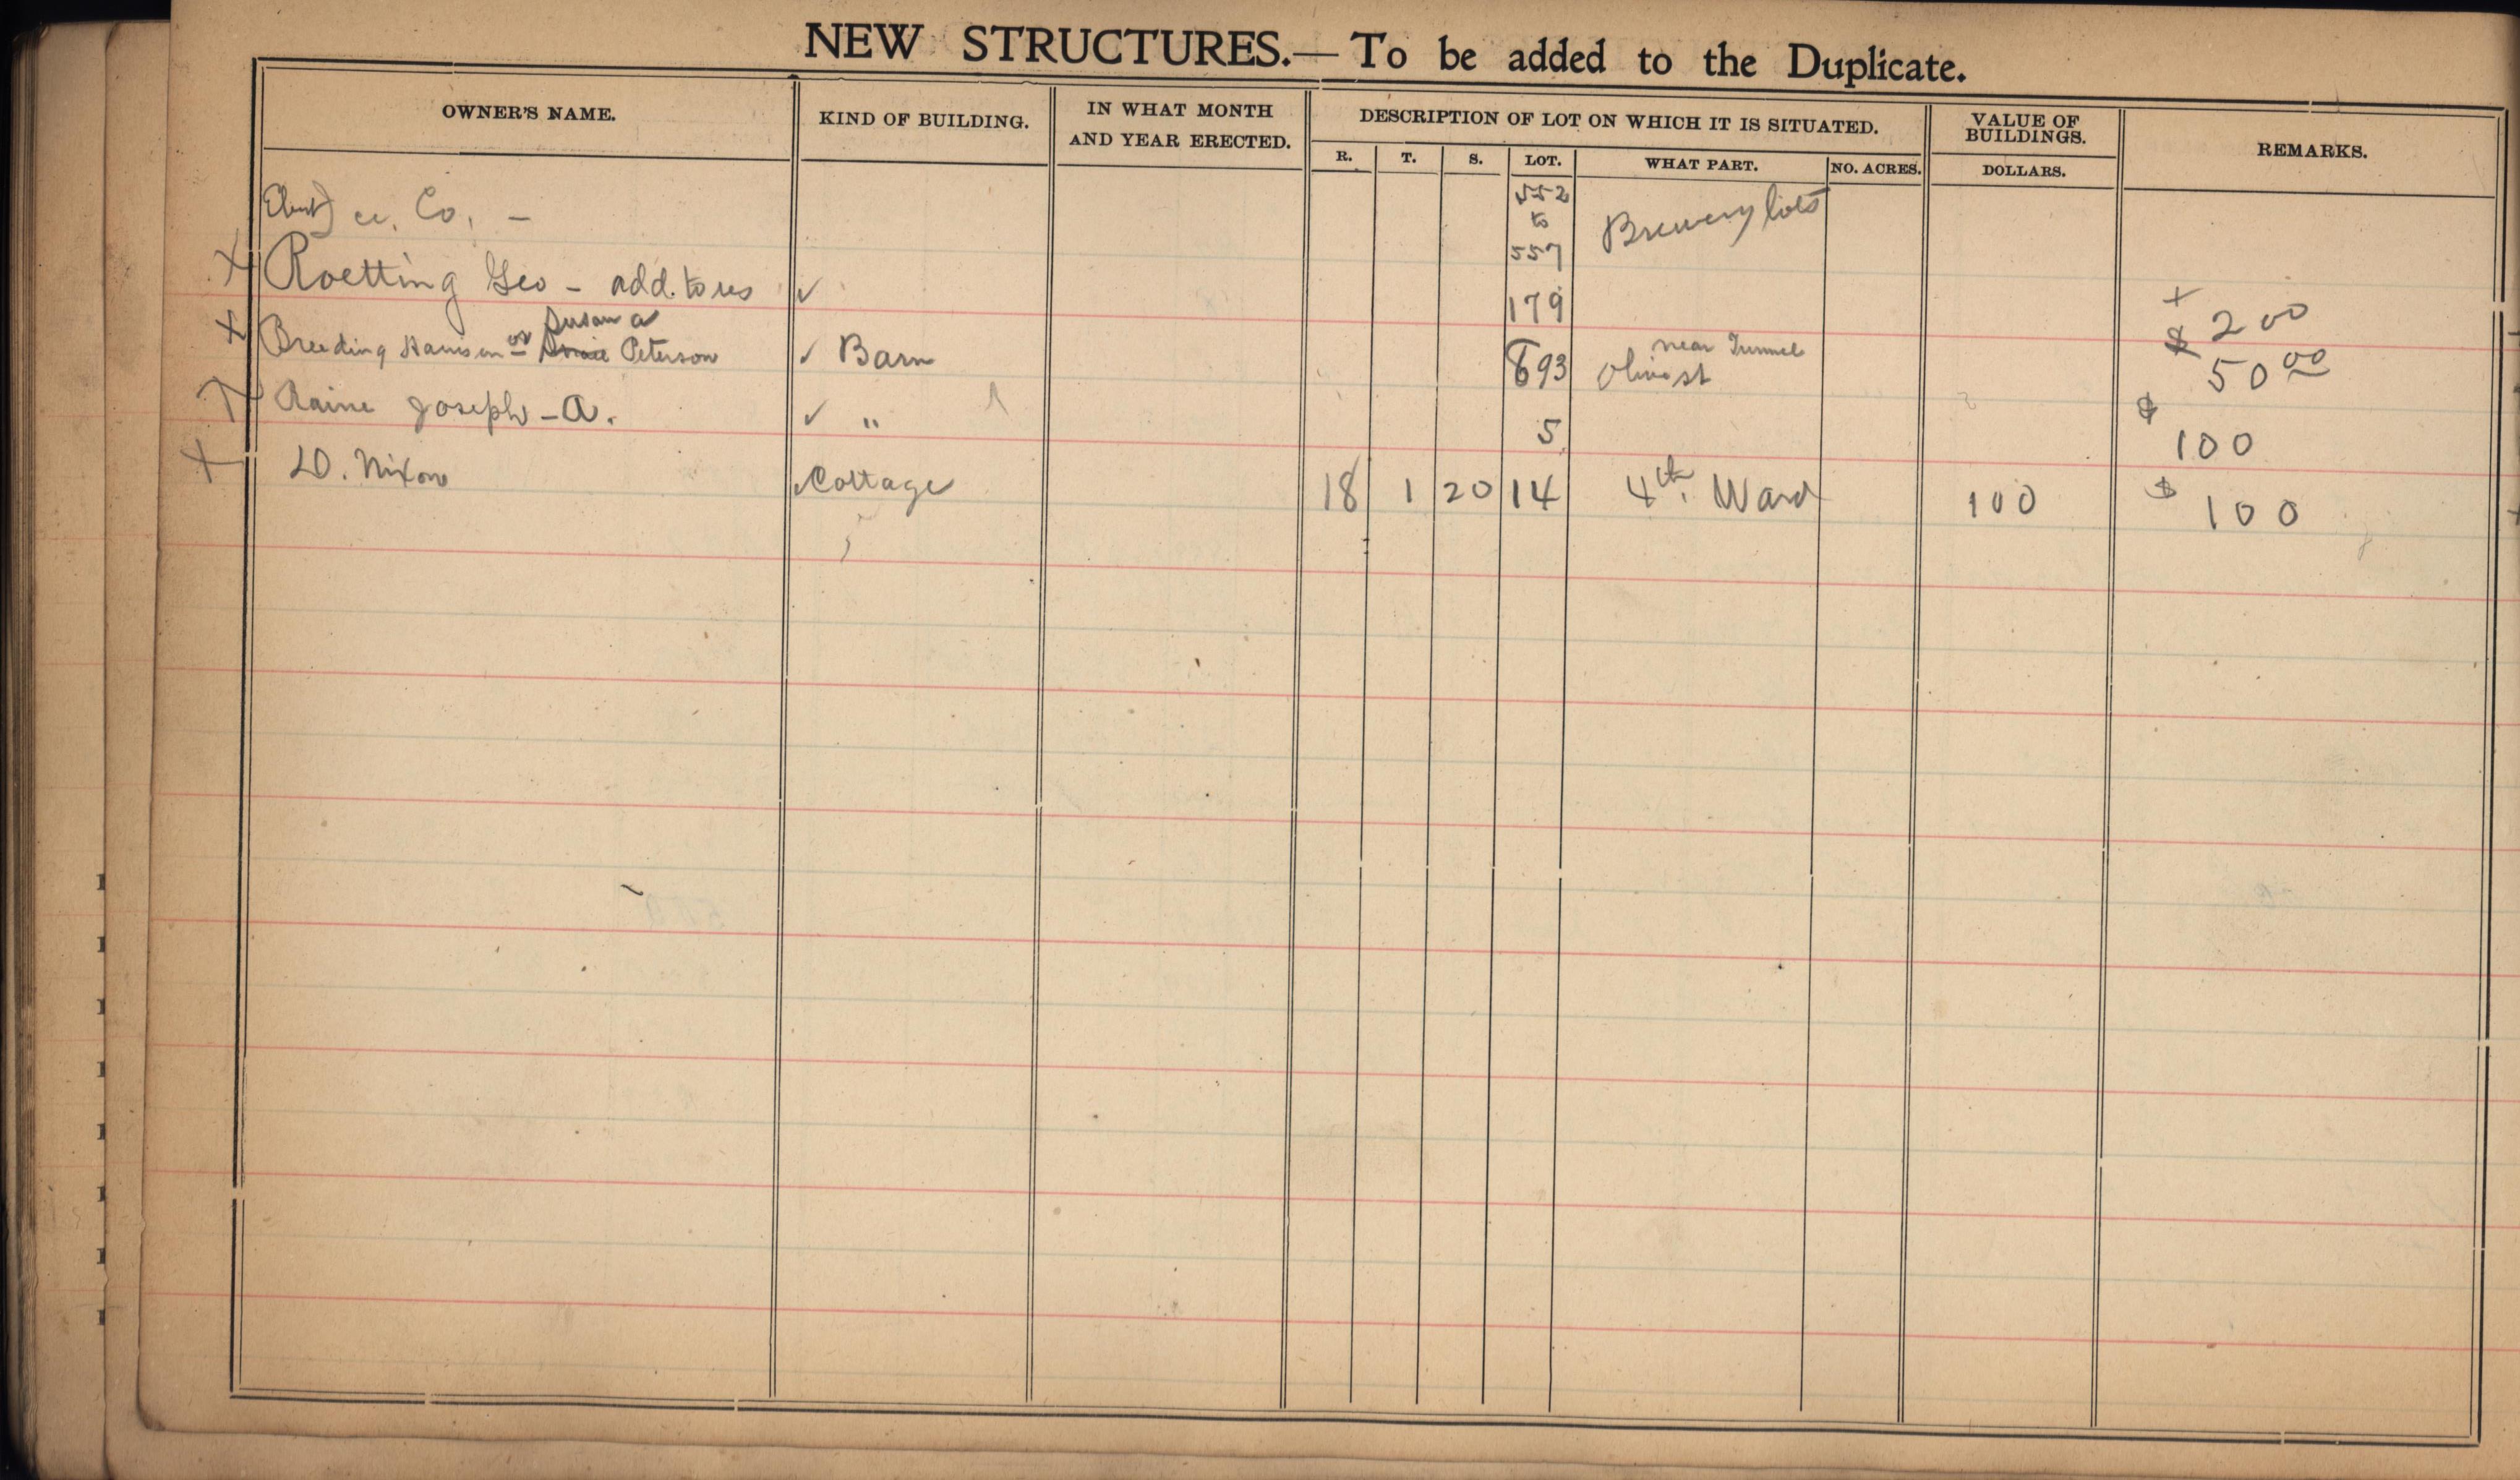 NEW STRUCTURES.— To be added to the Duplicate.
OWNER'S NAME. KIND OF BUILDING. IN WHAT MONTH AND YEAR ERECTED. DESCRIPTION OF LOT ON WHICH IT IS SITUATED. VALUE OF BUILDINGS. REMARKS.
R. T. S. LOT. WHAT PART. NO. ACRES. DOLLARS.
Co. – 552 to 557 Brewery lots
X Roetting Geo – add. to res ✓ 179 $ 200
X Breeding Harrison or Susan a Peterson ✓ Barn 693 Olive st near Tunnel 50 00
X Raine Joseph – A. ✓ " 5 $ 100
X D. Nixon ✓ Cottage 18 1 20 14 4th. Ward 100 $ 100